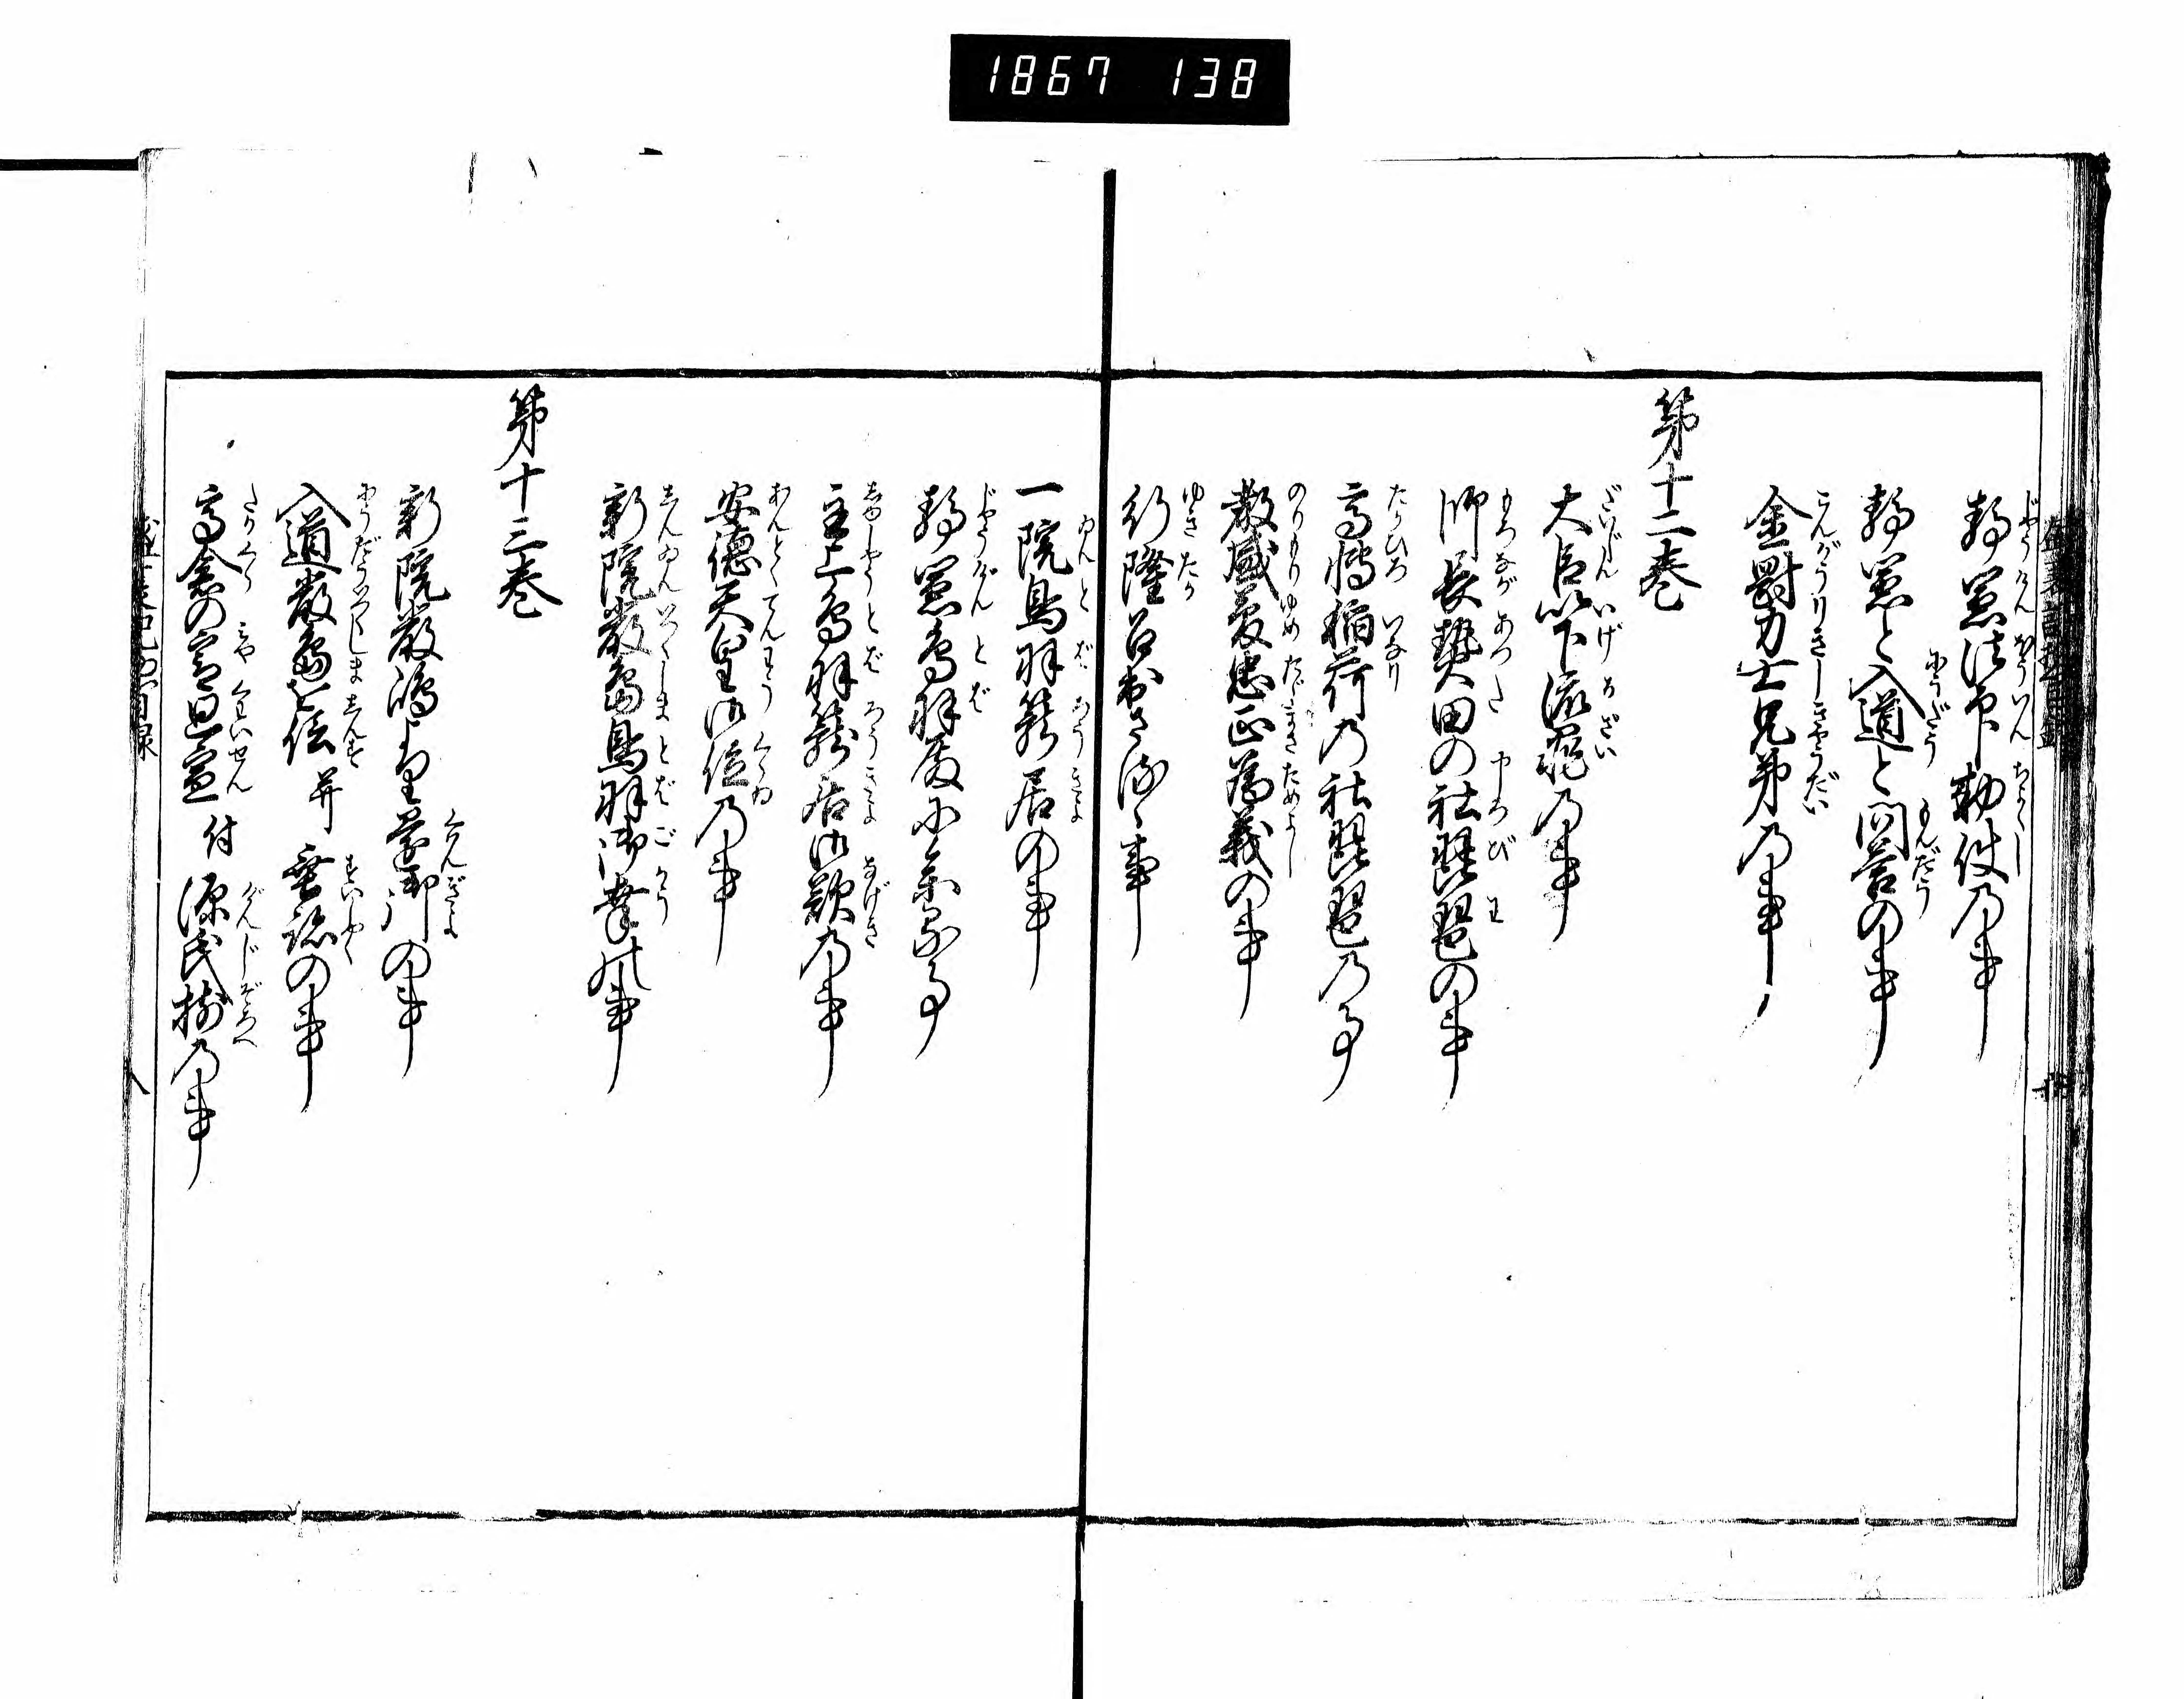 1867 138
静憲法印勅使乃事
静憲と入道と問答の事
金剛力士兄弟乃事
第十二巻
大臣以下流罪乃事
師長熱田の社琵琶の事
高博稲荷乃社琵琶乃事
教盛夢忠正為義の事
行隆召出さるゝ事
一院鳥羽籠居の事
静憲鳥羽殿に参る事
主上鳥羽籠居御歎乃事
安徳天皇御位乃事
新院厳島鳥羽御幸の事
第十三巻
新院厳嶋より還御の事
入道厳島を信并垂迹の事
高倉の宮廻宣付源氏揃乃事